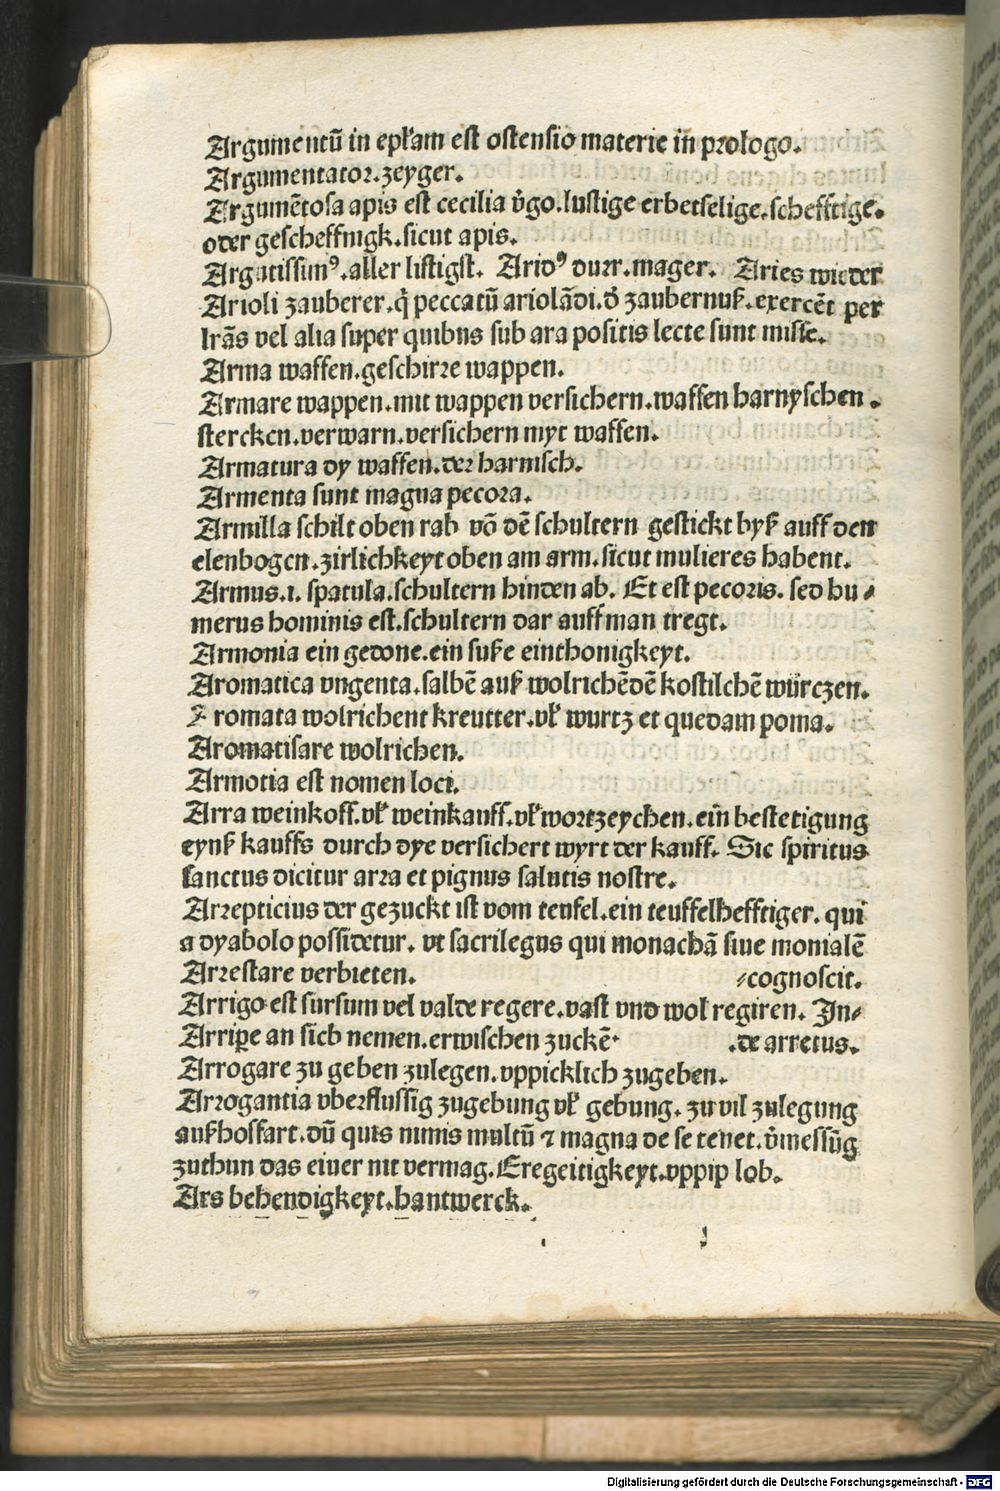 Argumentū in epl̄am est ostensio materie in prologo.
Argumentator.zeyger.
Argumētosa apis est cecilia v̄go.lustige erbetselige.schefftige.
oder gescheffnigk.sicut apis.
Argutissimꝰ.aller listigst. Aridꝰ durr.mager. Aries wieder
Arioli zauberer.q̄ peccatū ariolādi.d̄ zaubernuß.exercēt per
lrās vel alia super quibus sub ara positis lecte sunt misse.
Arma waffen.geschirre wappen.
Armare wappen.mit wappen versichern.waffen harnyschen.
stercken.verwarn.versichern myt waffen.
Armatura dy waffen.der harnisch.
Armenta sunt magna pecora.
Armilla schilt oben rab vō dē schultern gestickt byß auff den
elenbogen.zirlichkeyt oben am arm.sicut mulieres habent.
Armus.i. spatula.schultern hinden ab. Et est pecoris. sed hu⸗
merus hominis est.schultern dar auff man tregt.
Armonia ein gedone.ein suße einthonigkeyt.
Aromatica vngenta.salbē auß wolrichēdē kostilchē würczen.
Aromata wolrichent kreutter.vl̄ wurtz et quedam poma.
Aromatisare wolrichen.
Armotia est nomen loci.
Arra weinkoff.vl̄ weinkauff.vl̄ wortzeychen.ein bestetigung
eynß kauffs durch dye versichert wyrt der kauff. Sic spiritus
sanctus dicitur arra et pignus salutis nostre.
Arrepticius der gezuckt ist vom teufel.ein teuffelhefftiger. qui
a dyabolo possidetur. vt sacrilegus qui monachā siue monialē
Arrestare verbieten. ⸗cognoscit.
Arrigo est sursum vel valde regere.vast vnd wol regiren. In⸗
Arriꝑe an sich nemen.erwischen zuckē .de arretus.
Arrogare zu geben zulegen.vppicklich zugeben.
Arrogantia vberflussig zugebung vl̄ gebung. zu vil zulegung
außhoffart.dū quis nimis multū ⁊ magna de se tenet.v̄messūg
zuthun das einer nit vermag.Eregeitigkeyt.vppip lob.
Ars behendigkeyt.hantwerck.
Digitalisierung gefördert durch die Deutsche Forschungsgemeinschaft - DFG